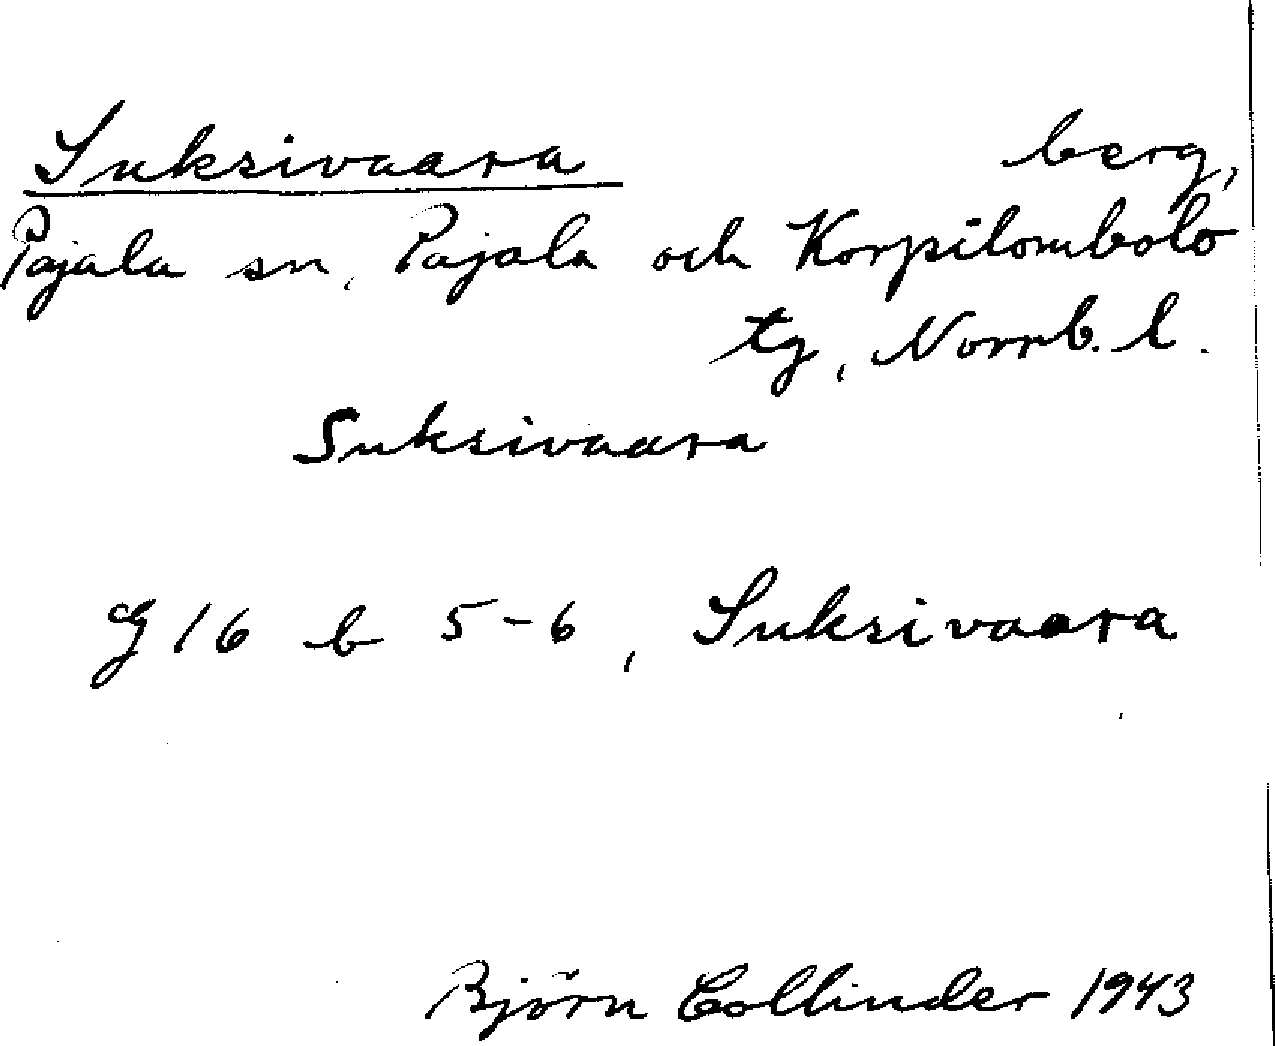 Suksivaara berg,
Pajala sn, Pajala och Korpilombolo
tg, Norrb. l.
Suksivaara
g 16 b 5-6, Suksivaara
Björn Collinder 1943